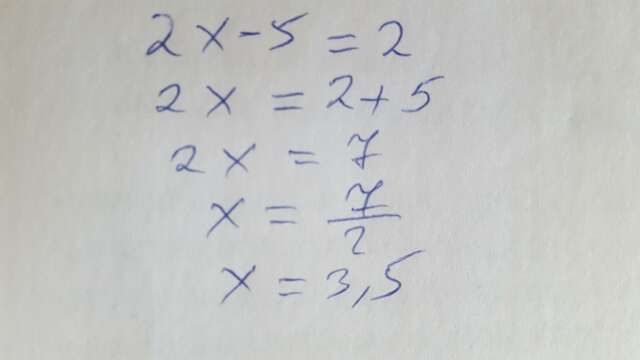 2x-5=2
2x=2+5
2x=7
x=7/2
x=3,5